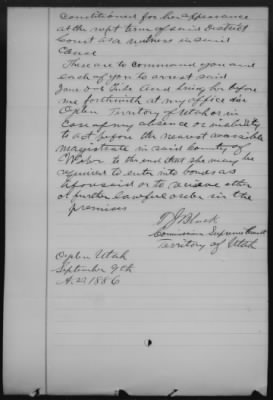 conditioned for her appearance
at the next term of said District
Court as a witness in said
Cause
These are to command you and
each of you to arrest said
Jane and bring her before
me forthwith at my office in
Ogden Territory of Utah or in
Case of my absence or inability
to act before the nearest accessible
magistrate in said County of
Weber to the end that she may be
required to enter into bonds as
aforesaid or to receive other
or further lawful order in the
premises
Black
Commissioner Supreme Court
Territory of Utah
Ogden Utah
September 9th
A.D. 1886